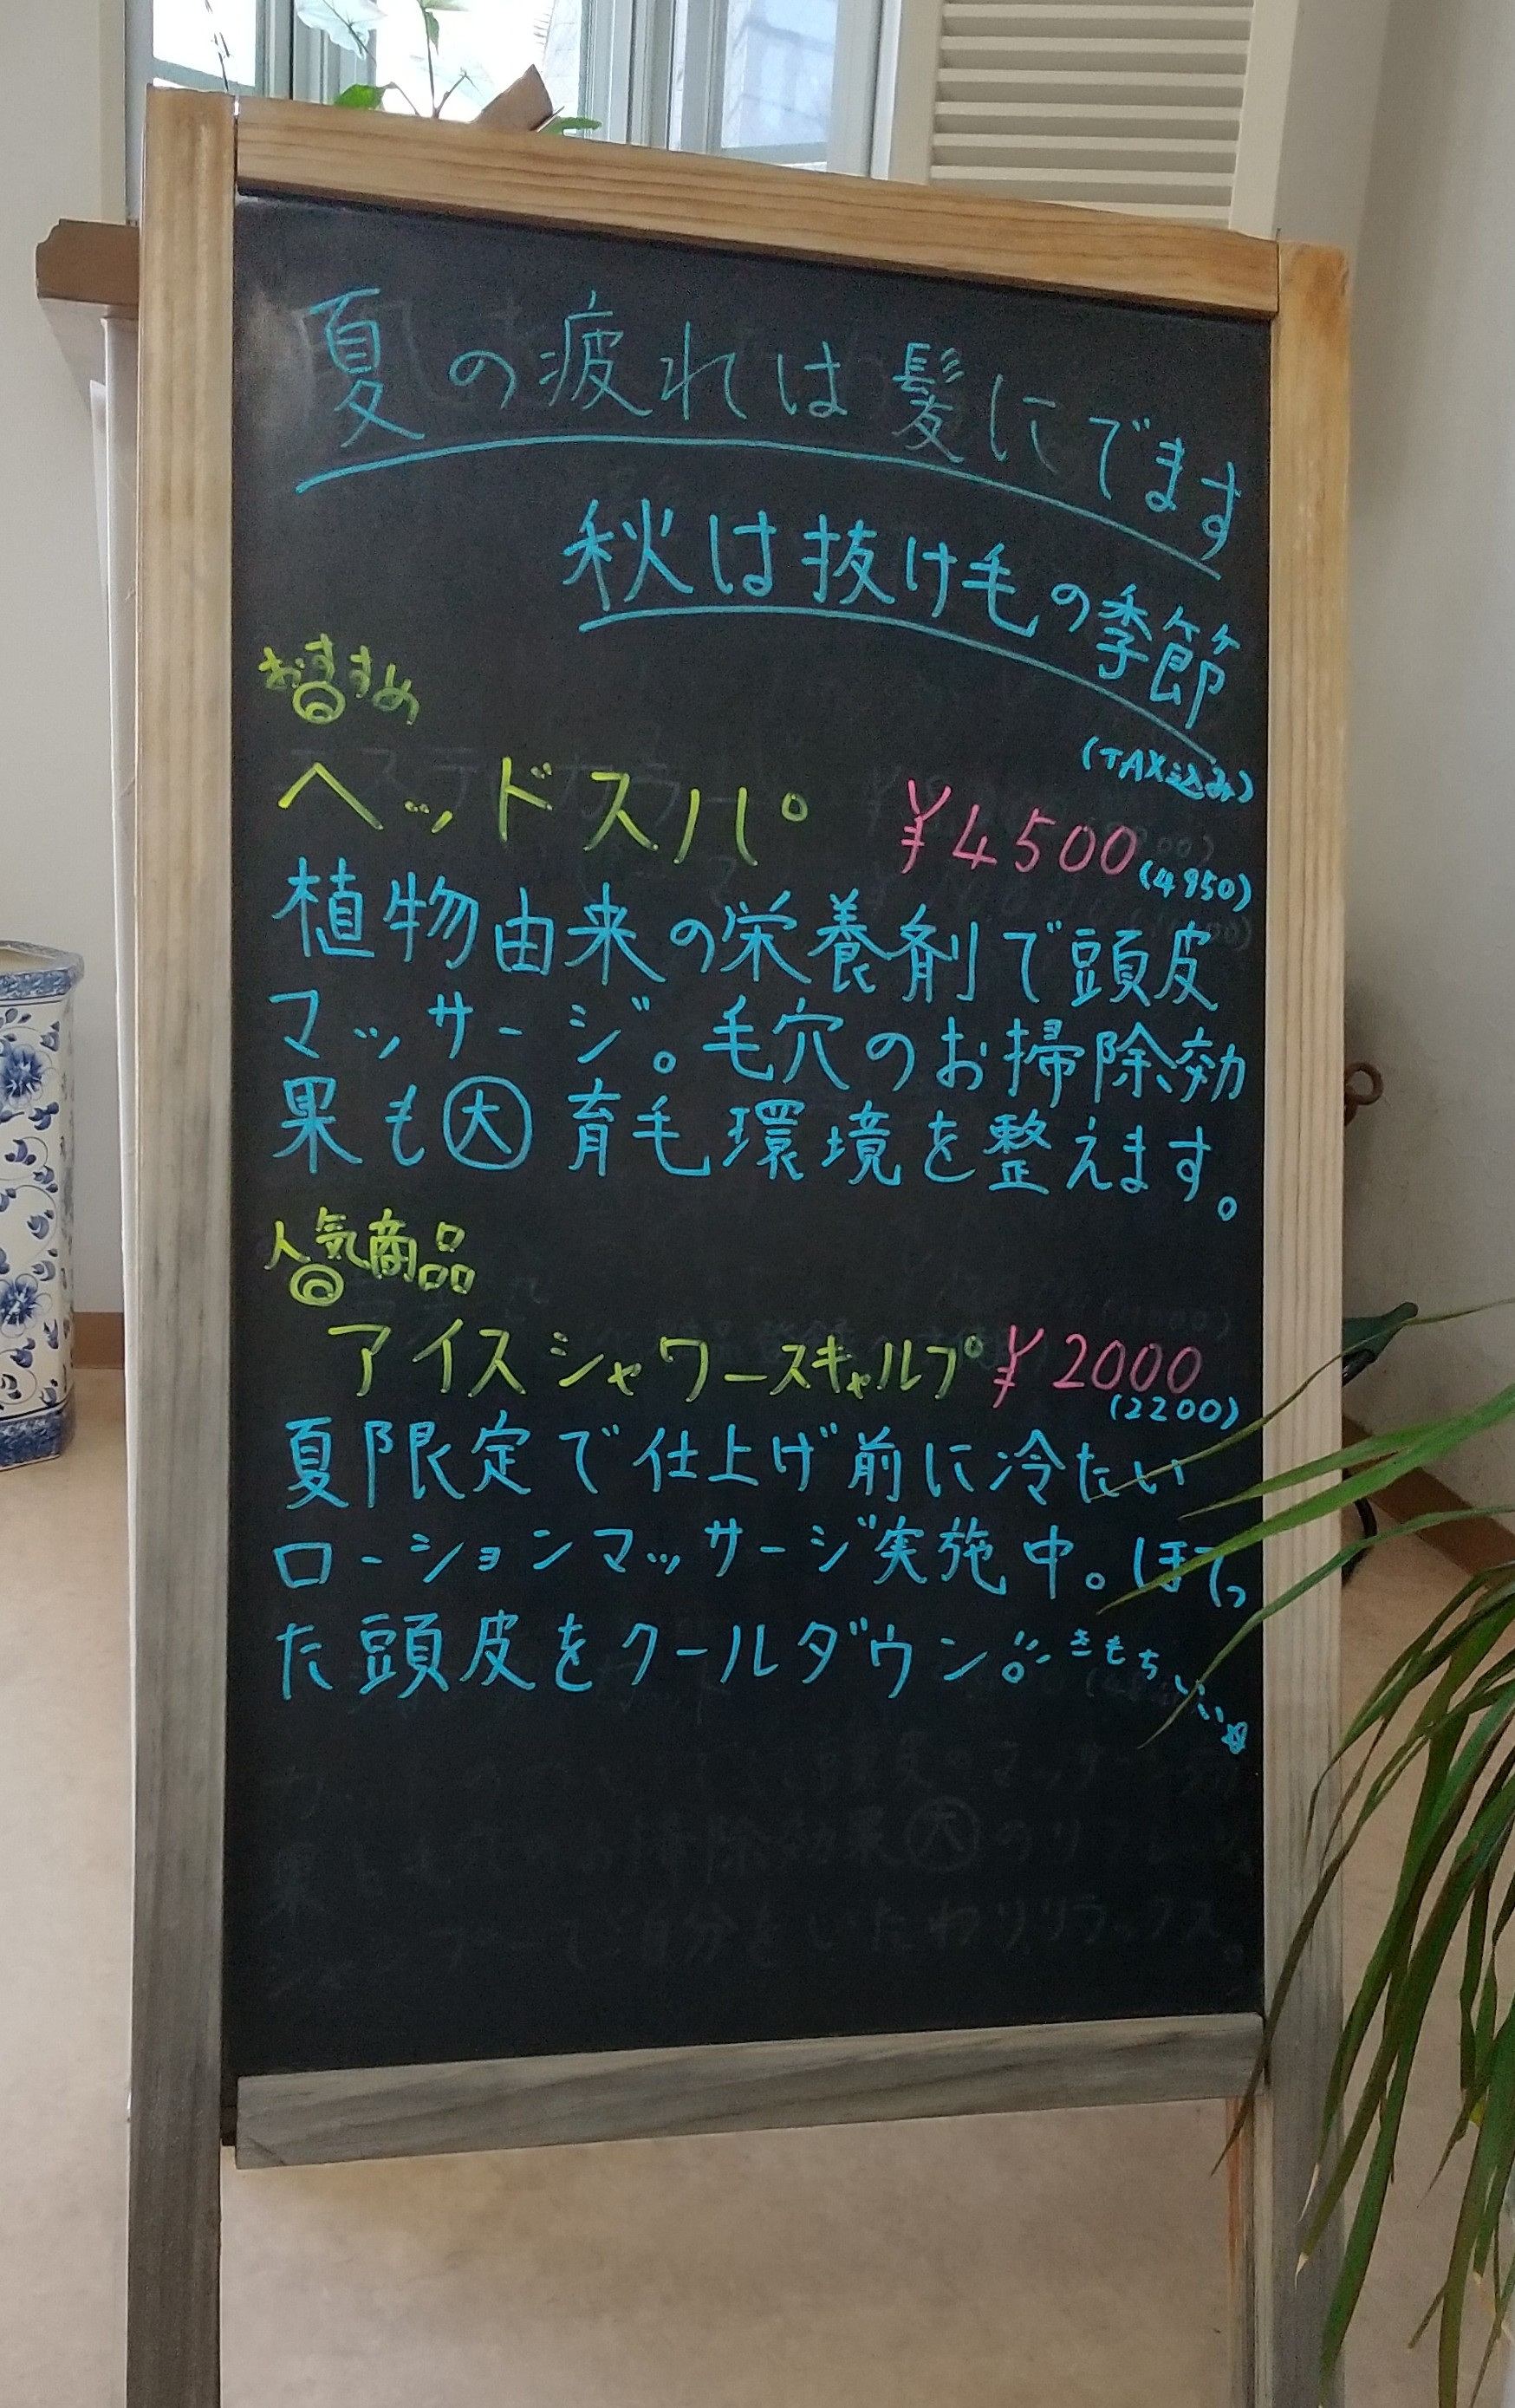 夏の疲れは髪にでます
秋は抜け毛の季節
おすすめ
(TAX込み)
ヘッドスパ ¥4500
(4950)
植物由来の栄養剤で頭皮
マッサージ。毛穴のお掃除効
果も大育毛環境を整えます。
人気商品
アイスシャワースキャルプ ¥2000
(2200)
夏限定で仕上げ前に冷たい
ローションマッサージ実施中。ほてっ
た頭皮をクールダウン。きもちいい☆